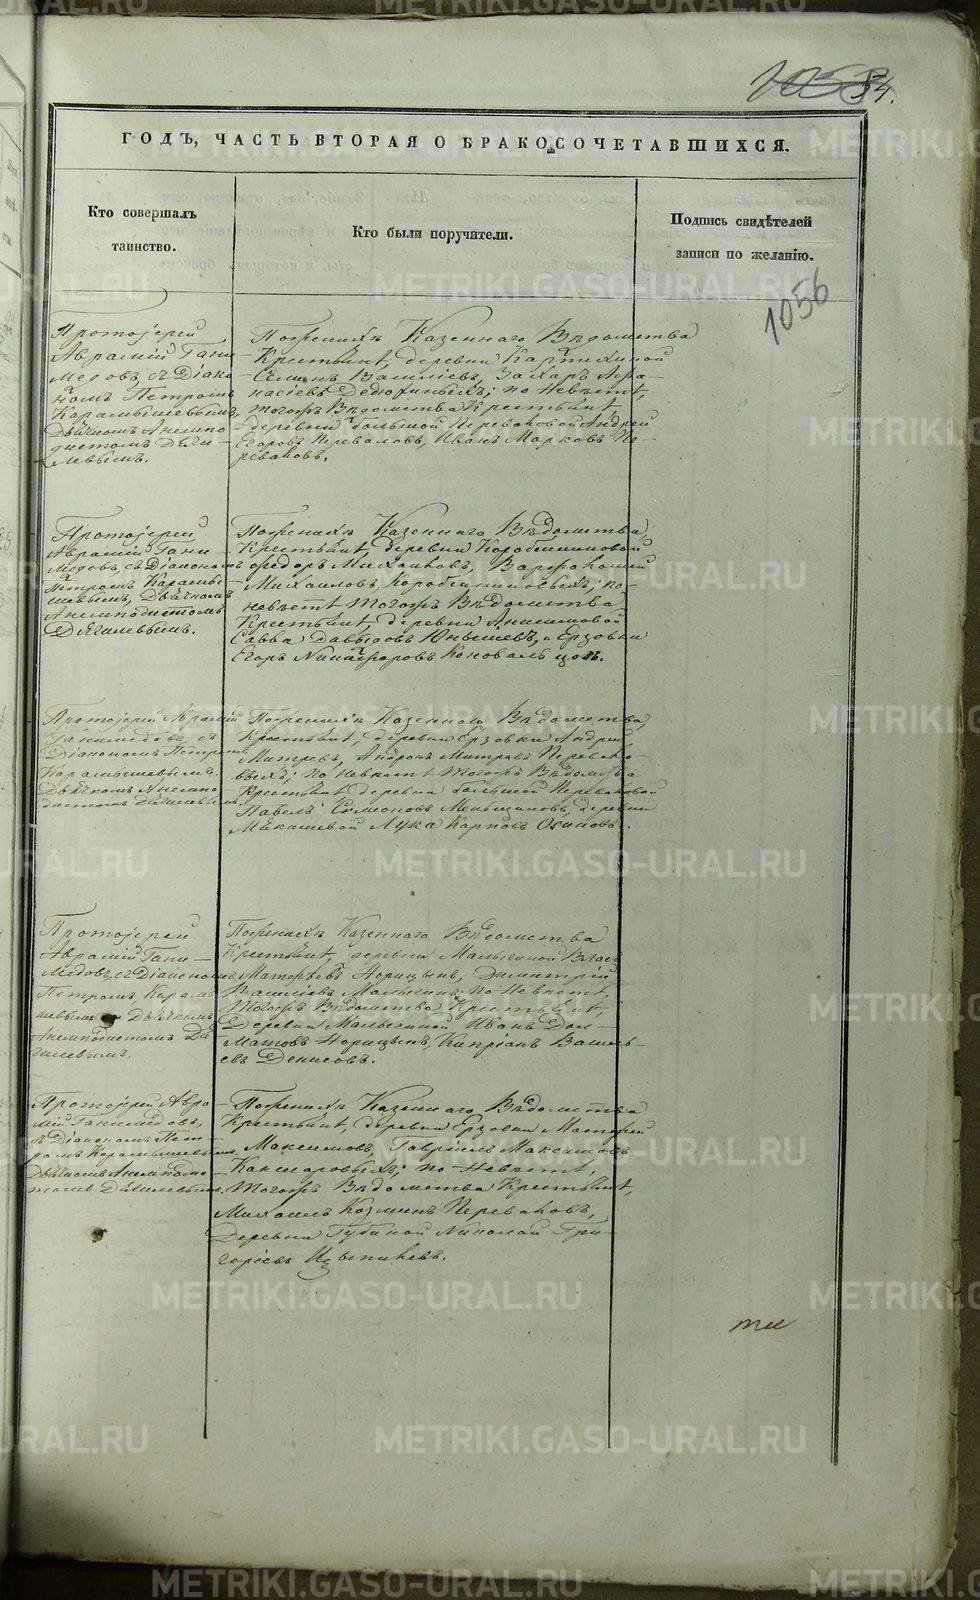 1058
54.
ГОДЪ, ЧАСТЬ ВТОРАЯ О БРАКОСОЧЕТАВШИХСЯ.
Кто совершалъ
таинство.
Кто были поручители.
Подпись свидѣтелей
записи по желанію.
1056
Протоіерей
Аврамій Гани-
медовъ, съ Діако-
номъ Петромъ
Карамышевымъ,
Дьячкомъ Анемпо-
дистомъ Дѣги-
левымъ.
По женихѣ Казеннаго Вѣдомства
Крестьяне, деревни
Василіевъ, Захаръ Афа-
насіевъ по невѣстѣ,
тогожъ Вѣдомства Крестьяне,
деревни большой Переваловой Андрей
Егоровъ Переваловъ, Иванъ Марковъ Пе-
реваловъ.
Протоіерей
Аврамій Гани-
медовъ, съ Діакономъ
Петромъ Карамы-
шевымъ, Дьячкомъ
Анемподистомъ
Дѣгилевымъ.
По женихѣ Казеннаго Вѣдомства
Крестьяне, деревни
Ѳедоръ Михаиловъ, Варфоломей
Михаиловъ по
невѣстѣ тогожъ Вѣдомства
Крестьяне, деревни Анисимовой
Савва Давыдовъ Юнышевъ, и Ерзовки
Егоръ Никифоровъ Коновальцовъ.
Протоіерей Аврамій
Ганимедовъ, съ
Діакономъ Петромъ
Карамышевымъ,
Дьячкомъ Анемпо-
дистомъ Дѣгилевымъ.
По женихѣ Казеннаго Вѣдомства
Крестьяне, деревни Ерзовки Андрей
Митревъ, Андронъ Митревъ Перевало-
выхъ; по невѣстѣ тогожъ Вѣдомства
Крестьяне деревни большой Переваловой
Павелъ Симеоновъ Меньщиковъ, деревни
Макашевой Лука Карповъ
Протоіерей
Аврамій Гани-
медовъ, съ Діакономъ
Петромъ Карамы-
шевымъ, Дьячкомъ
Анемподистомъ Дѣ-
гилевымъ.
По женихѣ Казеннаго Вѣдомства
Крестьяне, деревни Малыгиной
Матѳеевъ Норицынъ, Димитрій
Василіевъ Малыгинъ; по невѣстѣ,
тогожъ Вѣдомства Крестьяне,
Деревни Малыгиной Иванъ Дол-
матовъ Норицынъ, Кипріанъ Василь-
евъ Денисовъ.
Протоіерей Авра-
мій Ганимедовъ,
съ Діакономъ Пет-
ромъ Карамышевымъ,
Дьячкомъ Анемподи-
стомъ Дѣгилевымъ.
По женихѣ Казеннаго Вѣдомства
Крестьяне, деревни Ерзовки Матѳей
Максимовъ, Гавріилъ Максимовъ
по невѣстѣ,
тогожъ Вѣдомства Крестьяне,
Михаилъ Козминъ Переваловъ,
Деревни Губиной Николай Гри-
горіевъ
METRIKI.GASO-URAL.RU